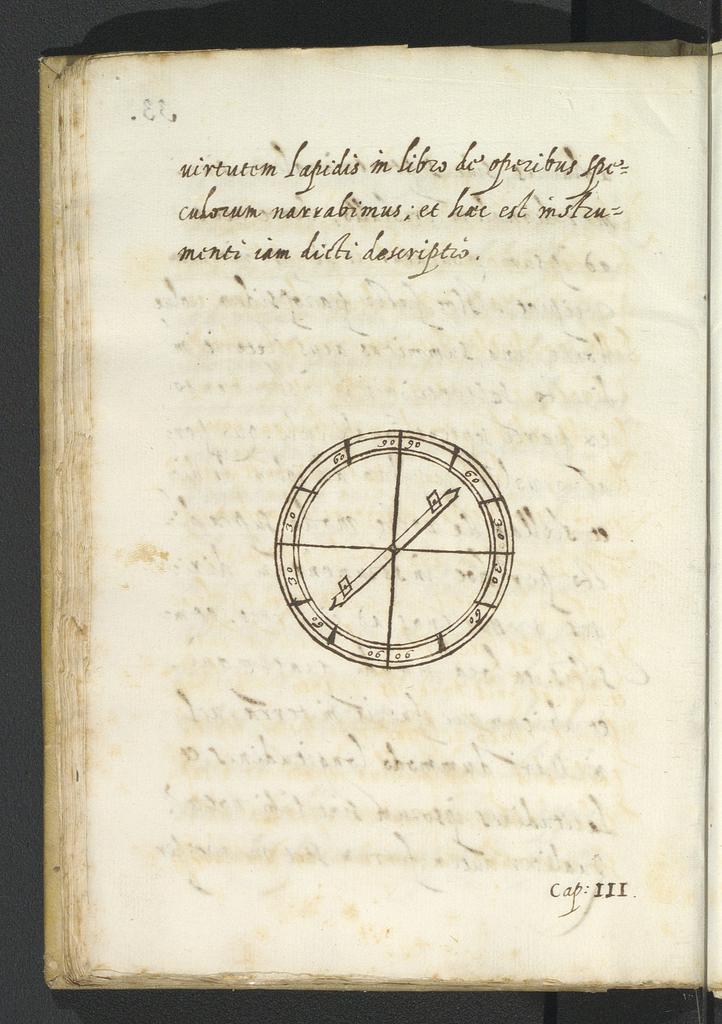 virtutem lapidis in libro de operibus spe=
culorum narrabimus; et hæc est instru=
menti iam dicti descriptio.
90 90
60 60
30 30
30 30
60 60
90 90
Cap: III.